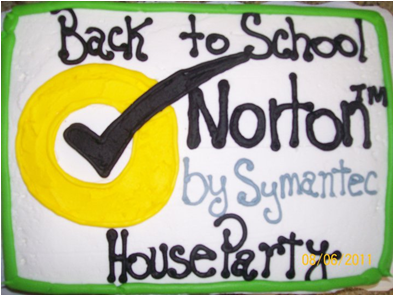 Back to School
Norton™
by Symantec
HouseParty.
08/06/2011